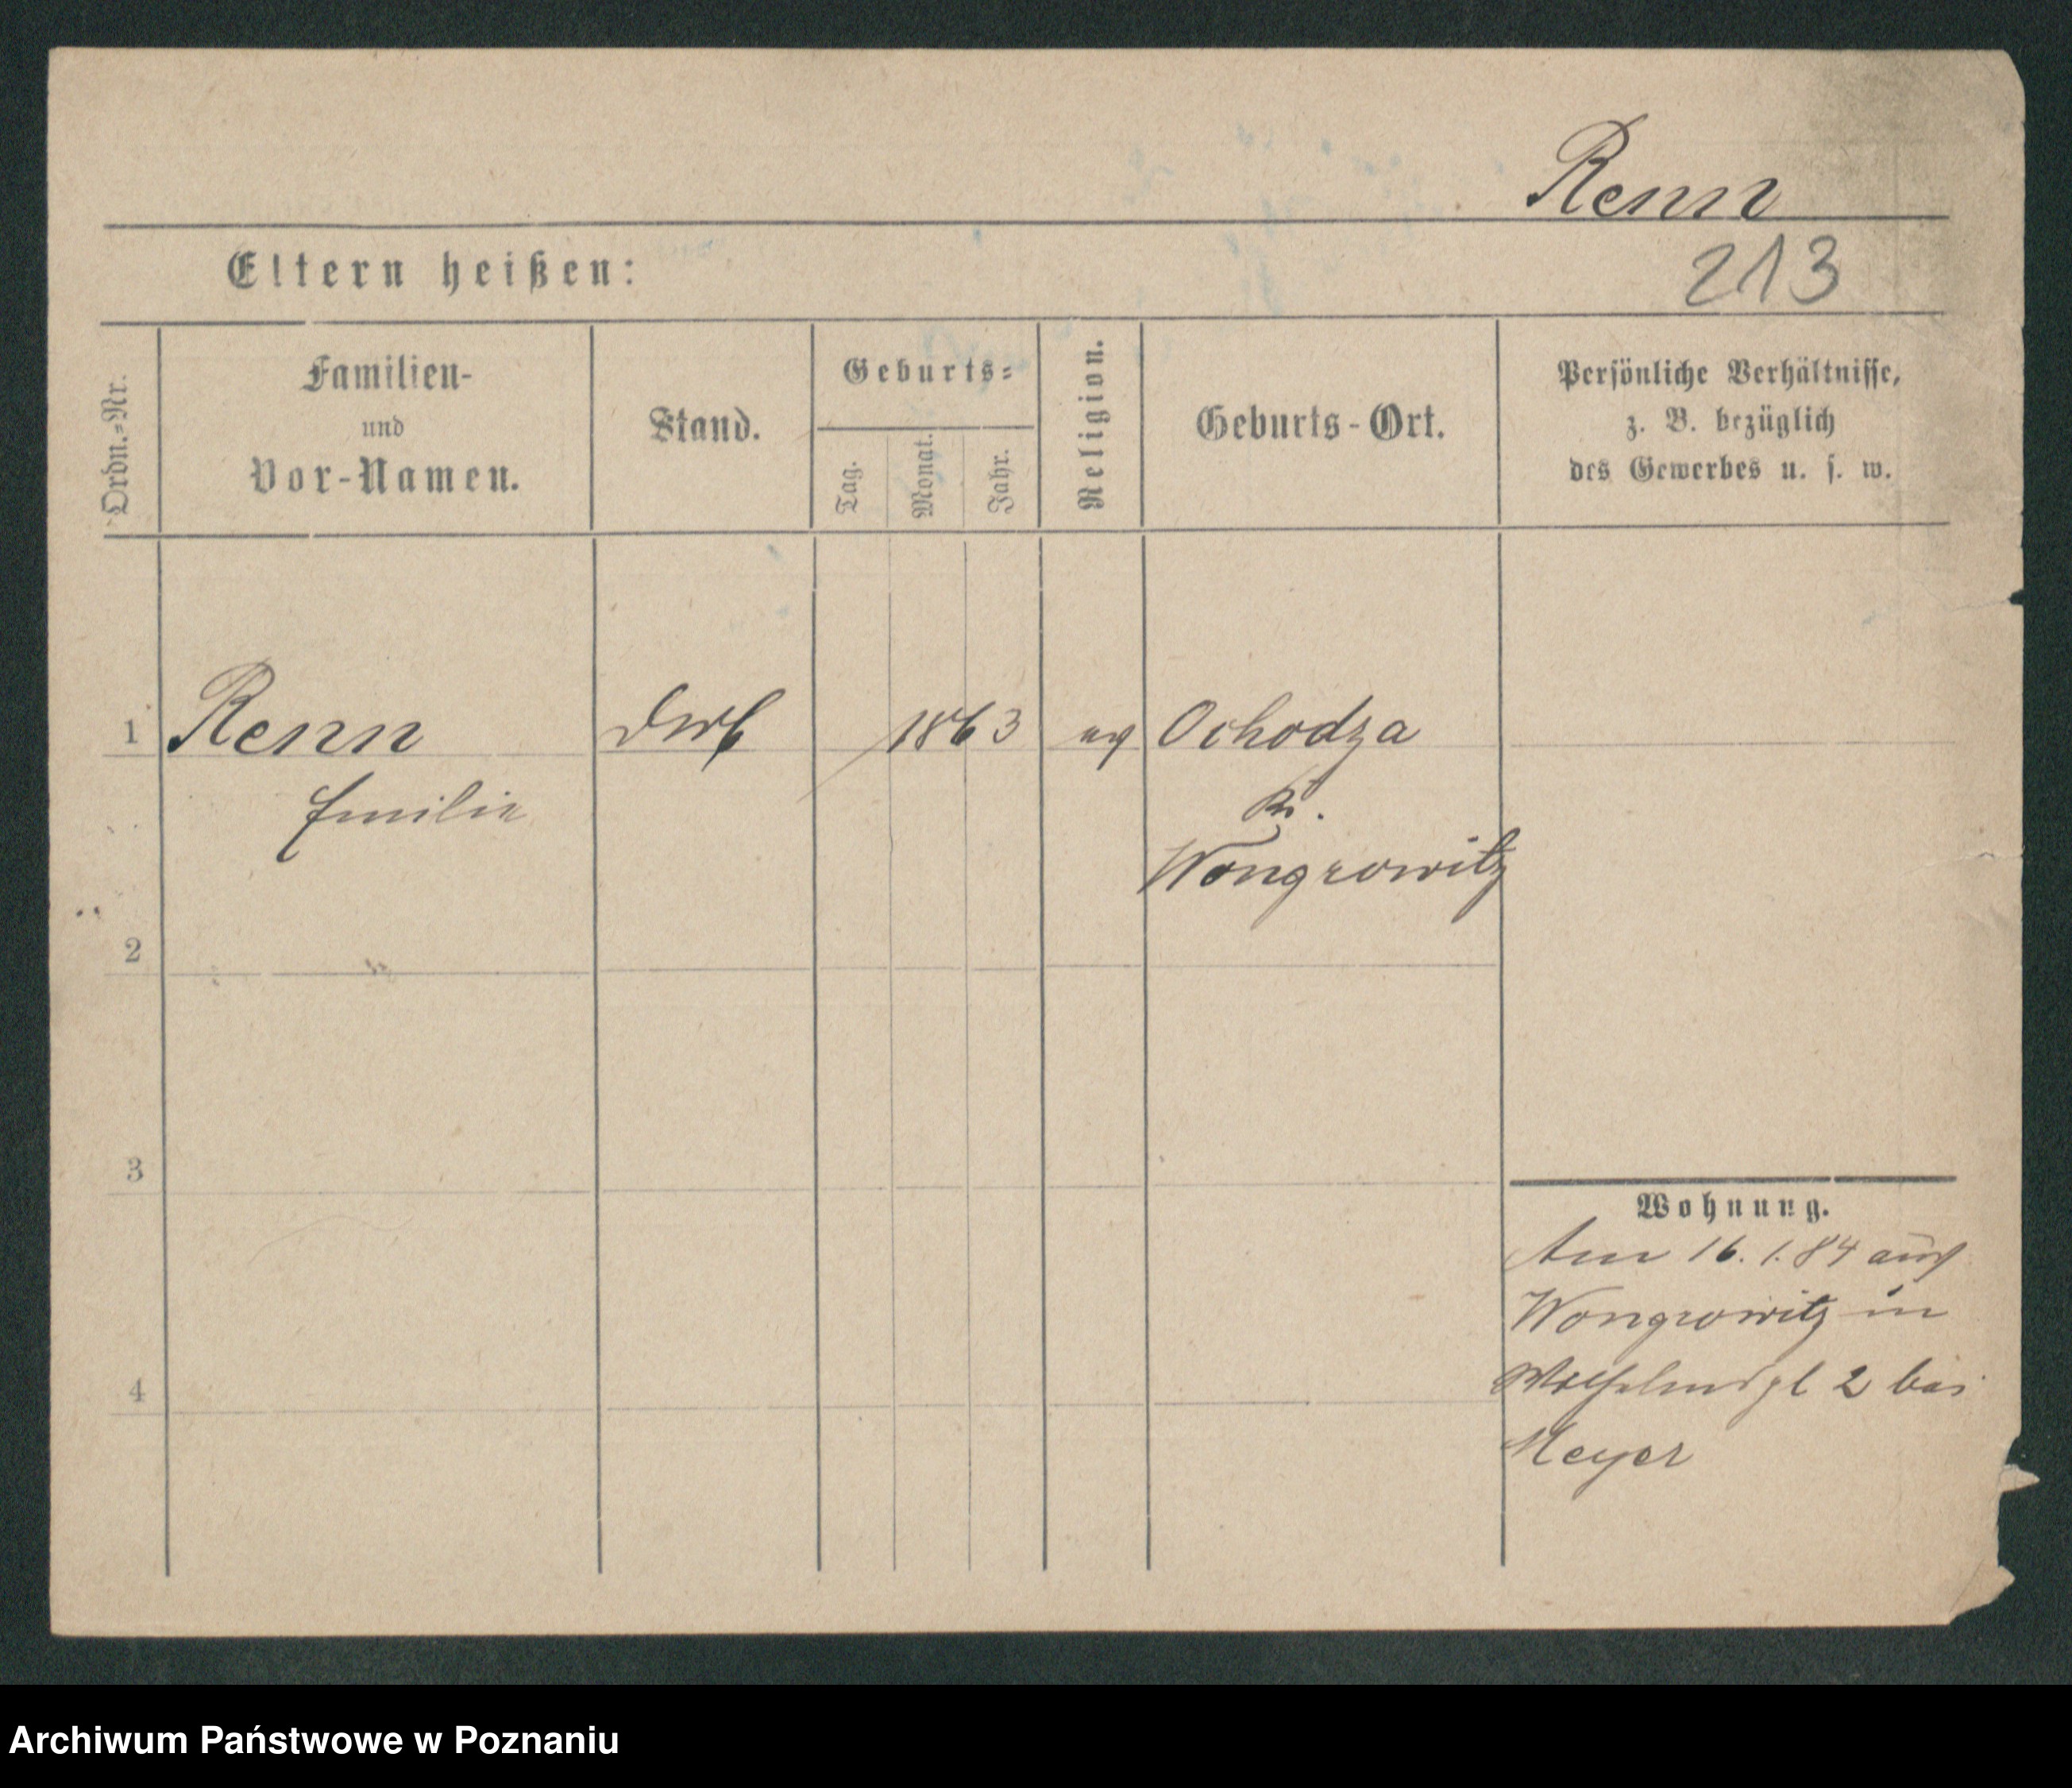 Renn
213
Eltern heißen:
Ordn.=Nr.
Familien-
und
Vor-Namen.
Stand.
Geburts=
Tag.
Monat.
Jahr.
Religion.
Geburts-Ort.
Persönliche Verhältnisse,
z. B. bezüglich
des Gewerbes u. s. w.
1 Renn 1863 Ochodza
Emilie
Kr.
Wongrowitz
2
3
4
Wohnung.
Am 16. 1. 84 aus
Wongrowitz in
Wilhelmspl 2 bei
Meyer
Archiwum Państwowe w Poznaniu